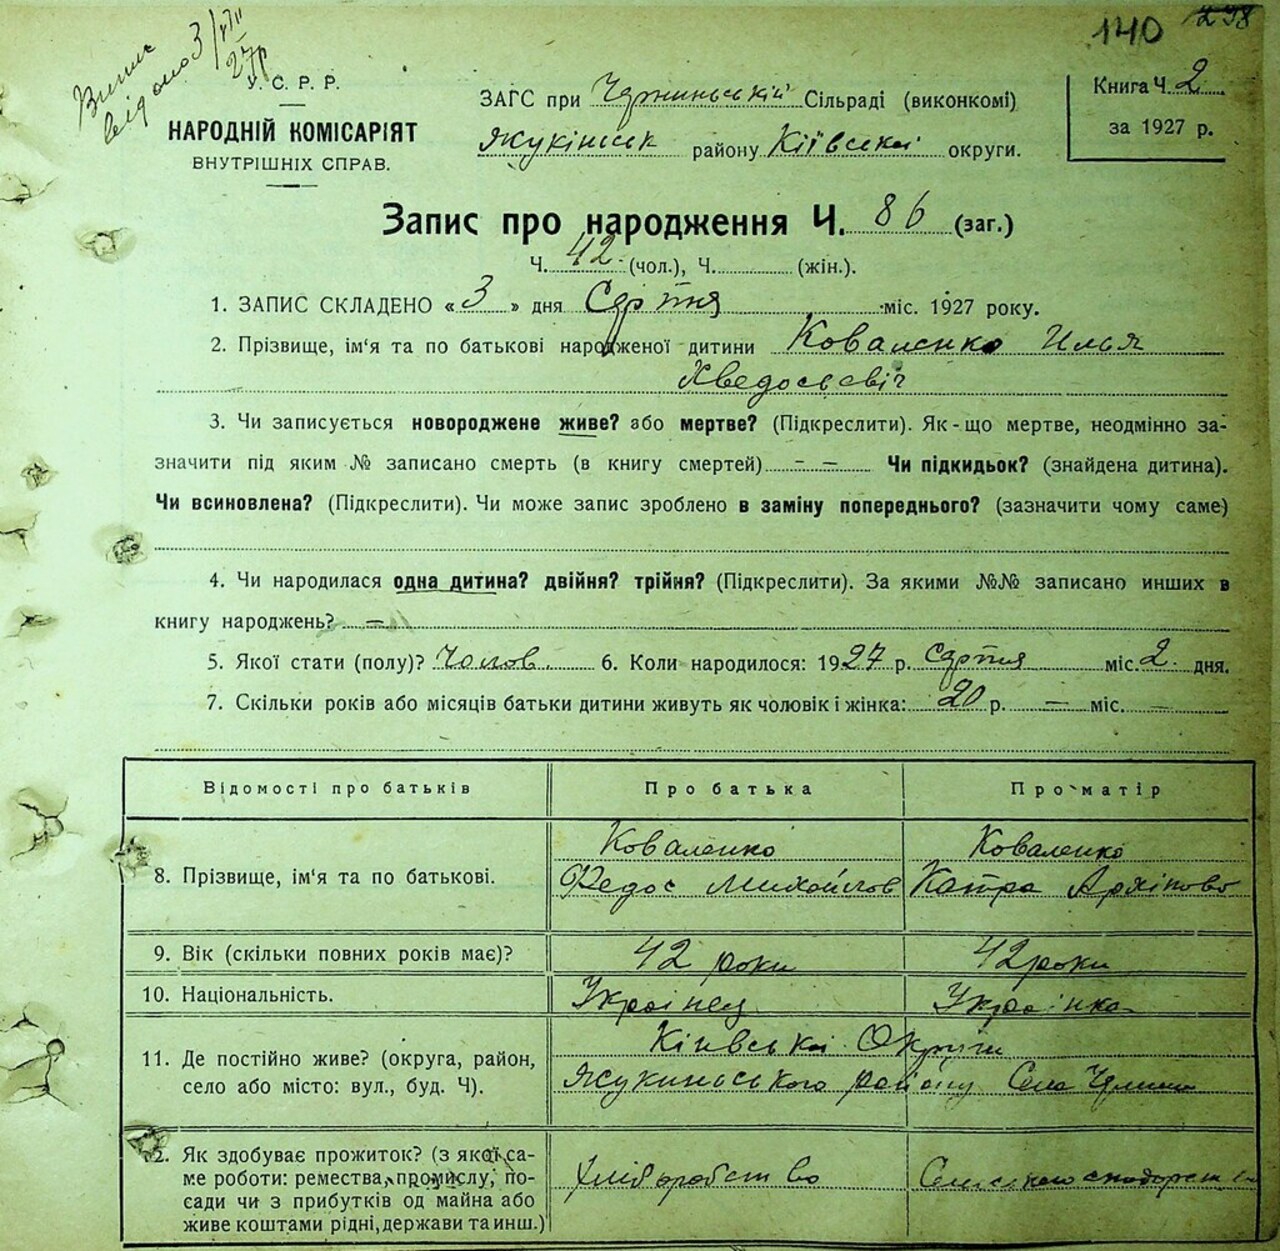 140 298
Випис
видано 3/VIII
27 р
У. С. Р. Р.
НАРОДНІЙ КОМІСАРІЯТ
ВНУТРІШНІХ СПРАВ.
ЗАГС при Сільраді (виконкомі)
району Київської округи.
Книга Ч. 2
за 1927 р.
Запис про народження Ч. 86 (заг.)
Ч. 42 (чол.), Ч. (жін.).
1. ЗАПИС СКЛАДЕНО « 3 » дня Серпня міс. 1927 року.
2. Прізвище, ім'я та по батькові народженої дитини Коваленко Илья
Хведосьєвіч
3. Чи записується новороджене живе? або мертве? (Підкреслити). Як-що мертве, неодмінно за-
значити під яким № записано смерть (в книгу смертей) – – Чи підкидьок? (знайдена дитина).
Чи всиновлена? (Підкреслити). Чи може запис зроблено в заміну попереднього? (зазначити чому саме)
4. Чи народилася одна дитина? двійня? трійня? (Підкреслити). За якими №№ записано инших в
книгу народжень? —
5. Якої стати (полу)? Чолов. 6. Коли народилося: 1927 р. серпня міс. 2 дня.
7. Скільки років або місяців батьки дитини живуть як чоловік і жінка: 20 р. — міс. —
Відомості про батьків Про батька Про матір
Коваленко Коваленко
8. Прізвище, ім'я та по батькові. Федос Михайлов Катра Архіпово
9. Вік (скільки повних років має)? 42 роки 42 роки
10. Національність. Украінец Украінка
Київської Округи
11. Де постійно живе? (округа, район,
село або місто: вул., буд. Ч). району Села
12. Як здобуває прожиток? (з якої са-
ме роботи: ремества, промислу, по-
сади чи з прибутків од майна або
живе коштами рідні, держави та инш.)
Хліборобство